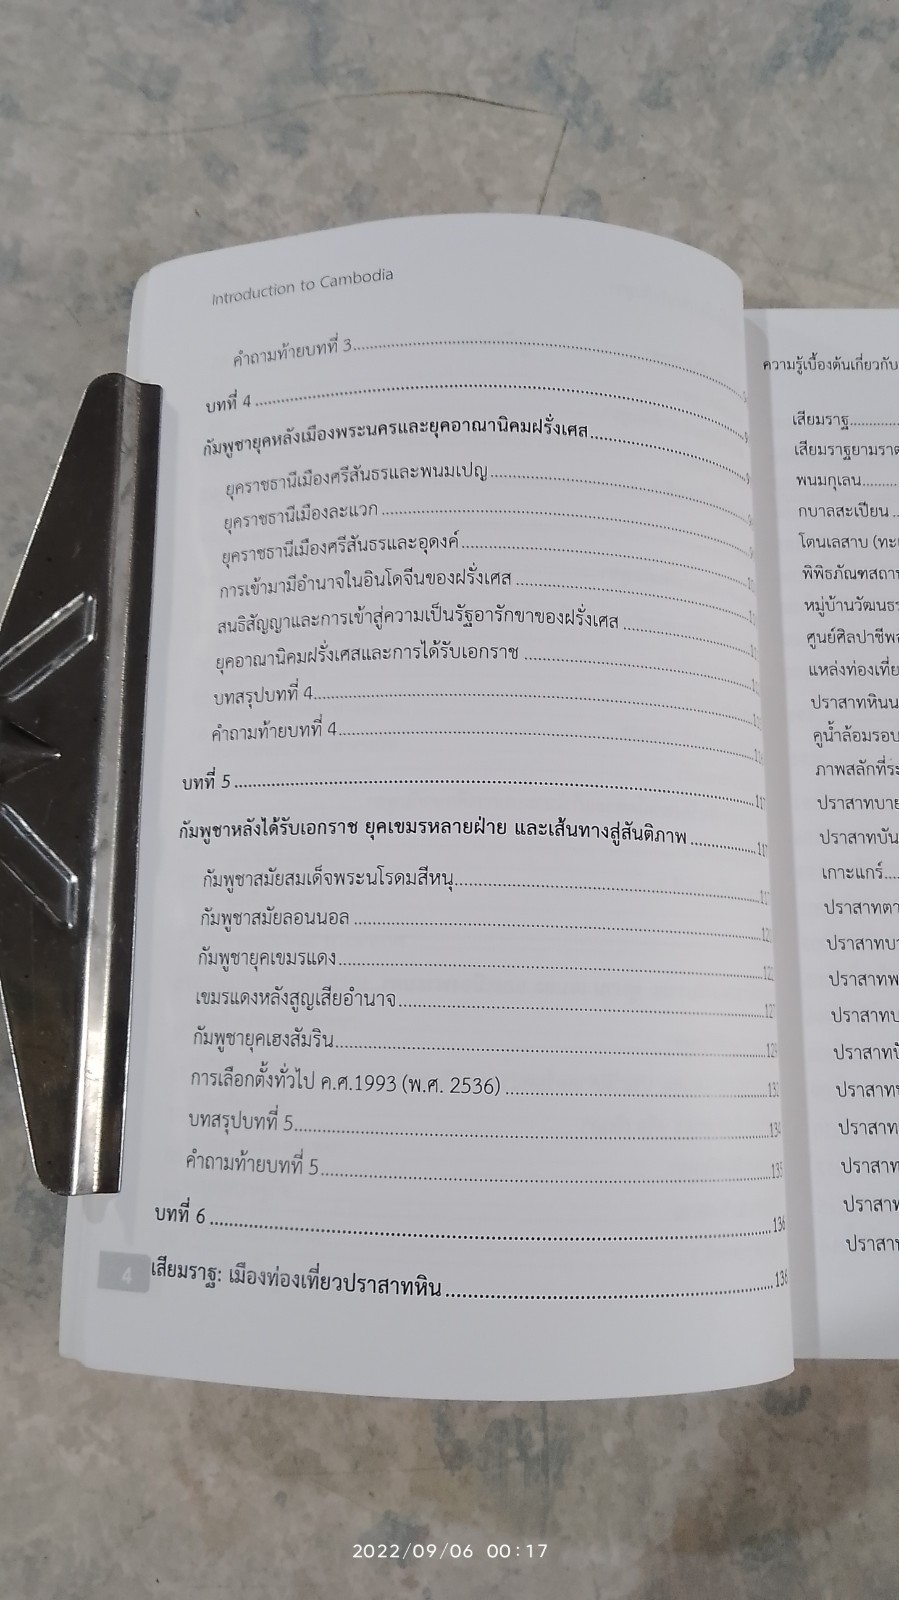 Introduction to Cambodia
คำถามท้ายบทที่ 3
บทที่ 4
กัมพูชายุคหลังเมืองพระนครและยุคอาณานิคมฝรั่งเศส
ยุคราชธานีเมืองศรีสันธรและพนมเปญ
ยุคราชธานีเมืองละแวก
ยุคราชธานีเมืองศรีสันธรและอุดงค์
การเข้ามามีอำนาจในอินโดจีนของฝรั่งเศส
สนธิสัญญาและการเข้าสู่ความเป็นรัฐอารักขาของฝรั่งเศส
ยุคอาณานิคมฝรั่งเศสและการได้รับเอกราช
บทสรุปบทที่ 4
คำถามท้ายบทที่ 4
บทที่ 5
กัมพูชาหลังได้รับเอกราช ยุคเขมรหลายฝ่าย และเส้นทางสู่สันติภาพ
กัมพูชาสมัยสมเด็จพระนโรดมสีหนุ
กัมพูชาสมัยลอนนอล
กัมพูชายุคเขมรแดง
เขมรแดงหลังสูญเสียอำนาจ
กัมพูชายุคเฮงสัมริน
การเลือกตั้งทั่วไป ค.ศ.1993 (พ.ศ. 2536)
บทสรุปบทที่ 5 134
คำถามท้ายบทที่ 5 135
บทที่ 6 136
เสียมราฐ: เมืองท่องเที่ยวปราสาทหิน 136
4
ความรู้เบื้องต้นเกี่ยวกับ
เสียมราฐ
เสียมราฐยามรา
พนมกุเลน
กบาลสะเปียน
โตนเลสาบ
พิพิธภัณฑสถาน
หมู่บ้านวัฒนธร
ศูนย์ศิลปาชีพ
แหล่งท่องเที่ย
ปราสาทหิน
คูน้ำล้อมรอบ
ภาพสลักที่ระ
ปราสาทบาย
ปราสาทบัน
เกาะแกร์
ปราสาทตา
ปราสาทบา
ปราสาทพ
ปราสาท
ปราสาท
ปราสาท
ปราสาท
ปราสาท
ปราสาท
ปราสา
2022/09/06 00:17